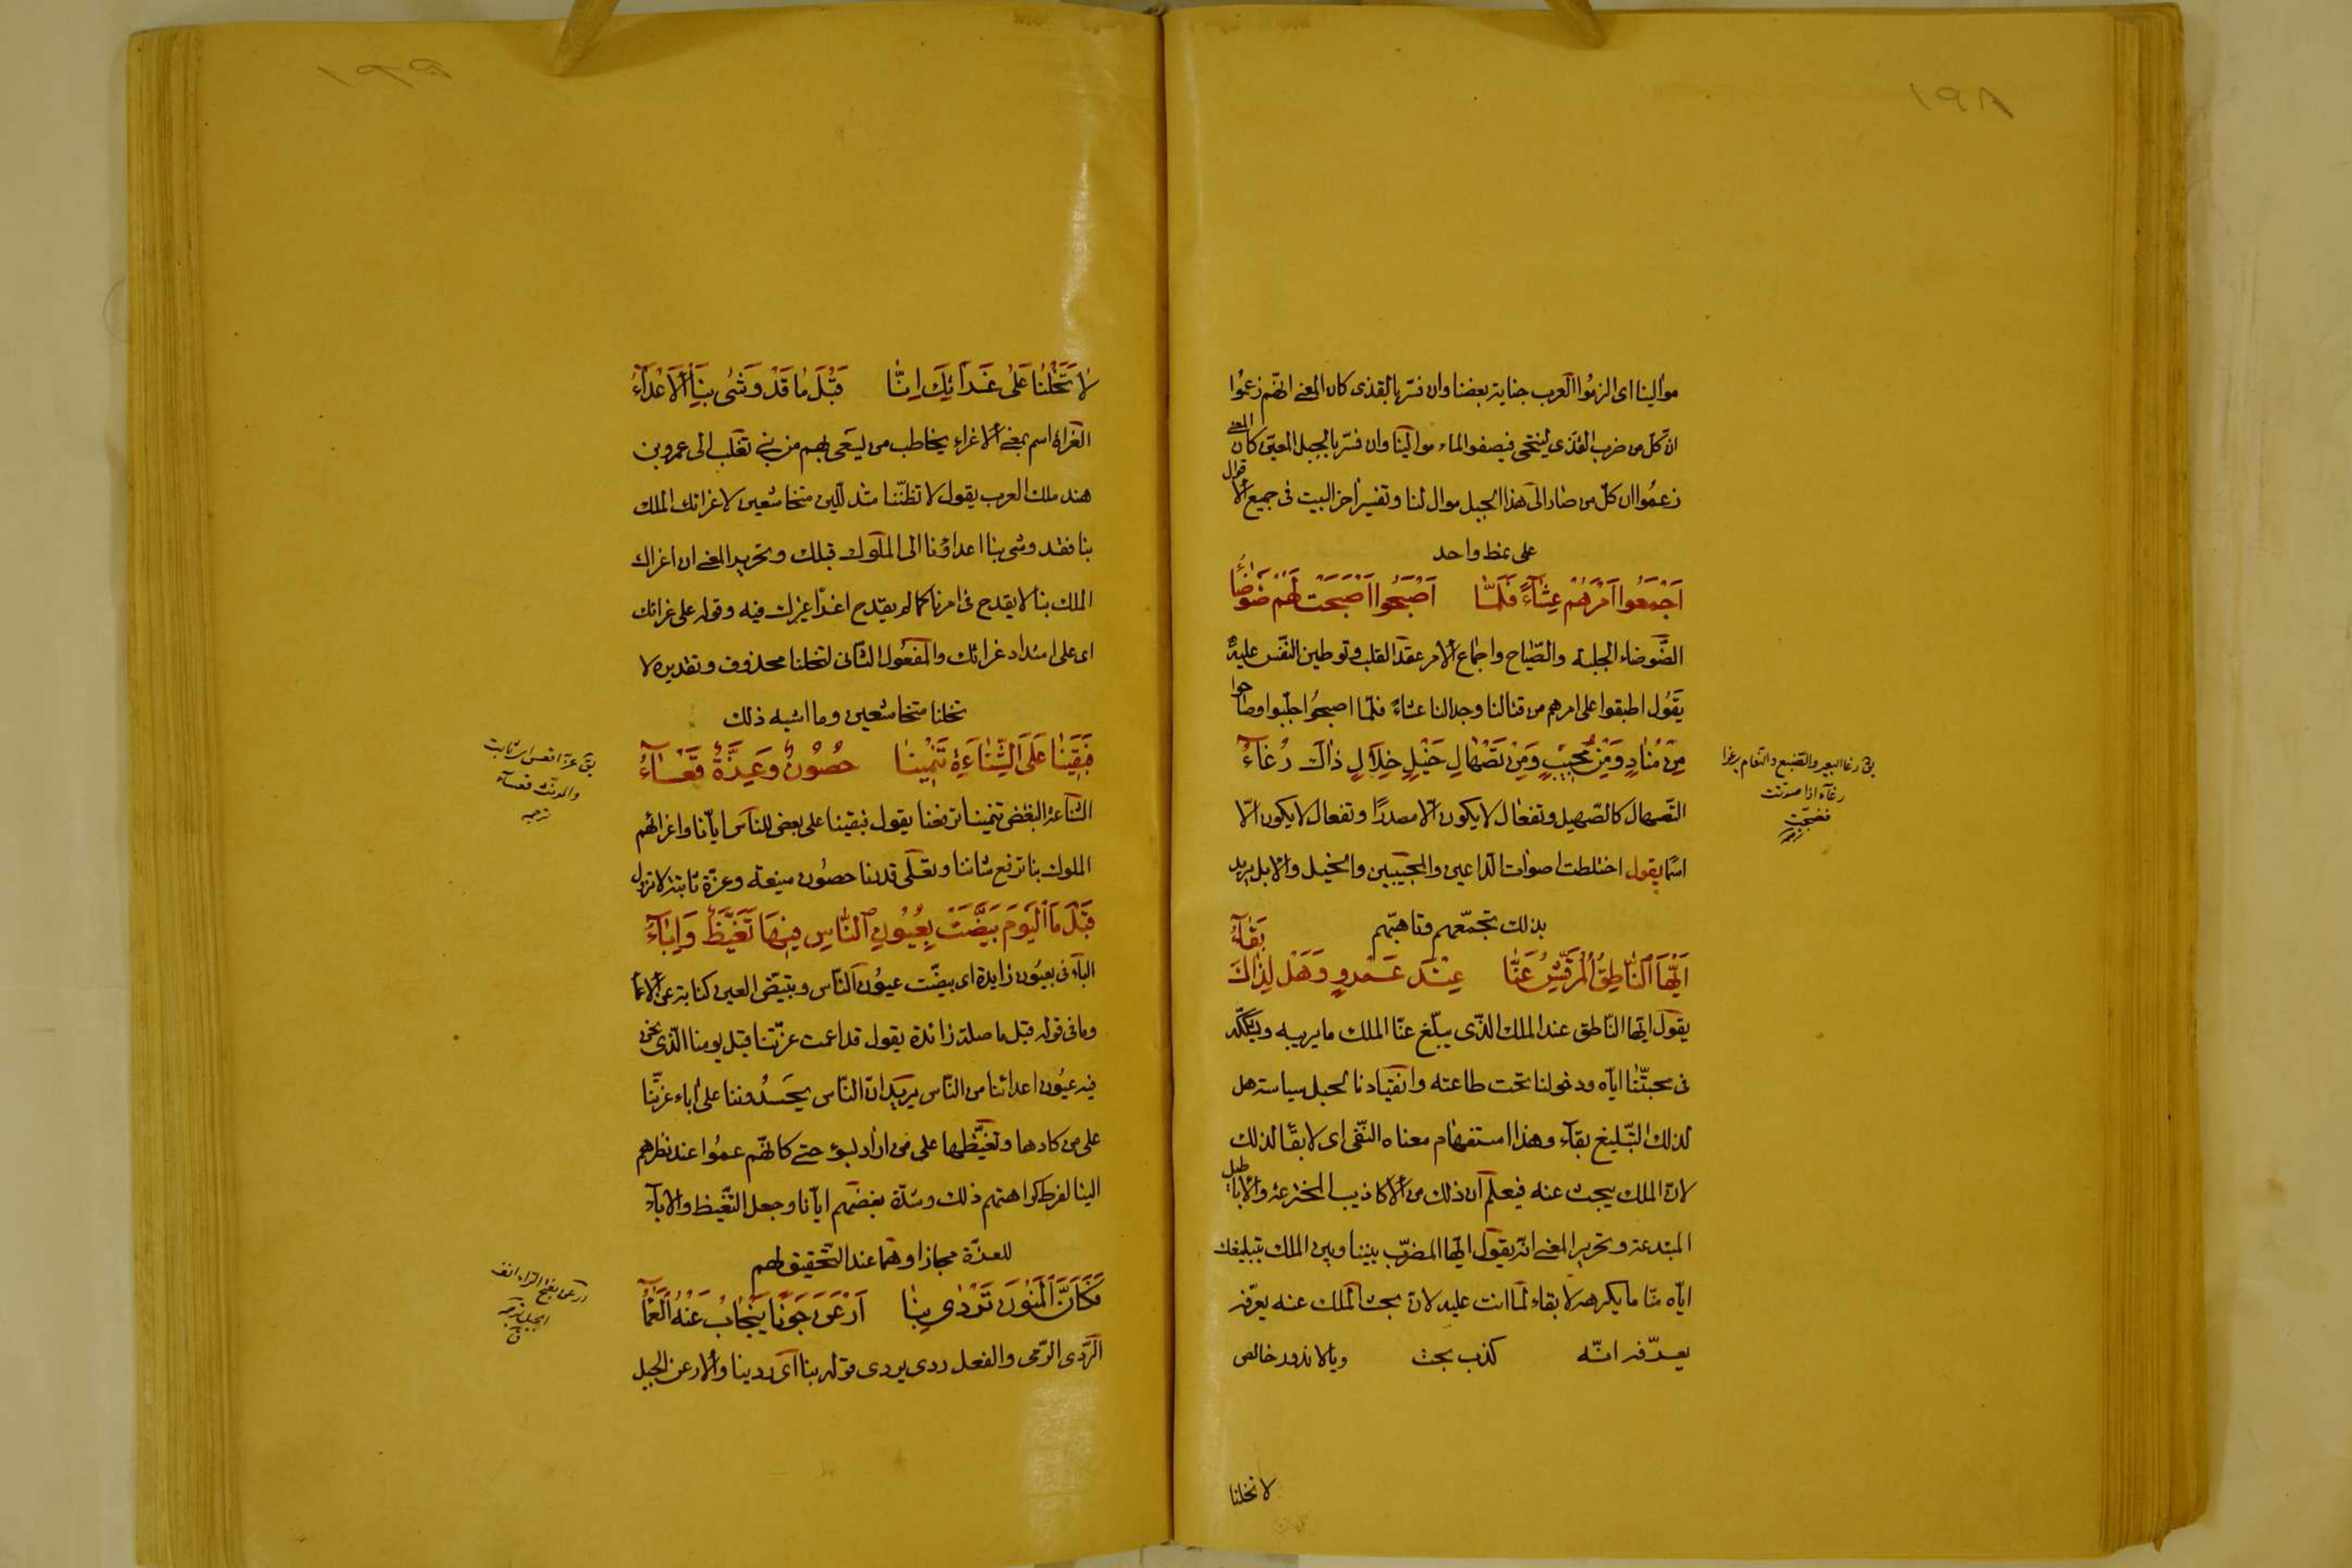 ١٩٨
موالينا اى الزموا العرب جناية بعضنا وان فسّر بالقذى كان المعنى انّهم زعموا
انّ كلّ من ضرب القذى ليتنحى فيصفو الماء موالينا وان فسّر بالجبل المعيّن كان المعنى
زعموا ان كلّ من صار الى هذا الجبل موال لنا وتفسير اخر البيت فى جميع الاقوال
على نمط واحد
اَجْمَعُوا اَمْرَهُمْ عِشَآءً فَلَمَّا اَصْبَحُوا اَصْبَحَتْ لَهُمْ ضَوْضَاءُ
الضّوضاء الجلبة والصّياح واجماع الامر عقد القلب وتوطين النّفس عليه
يَقُول اطبقوا على امرهم من قتالنا وجدالنا عشاءً فلمّا اصبحوا جلّبوا وصاحوا
مِنْ مُنَادٍ وَمِنْ مُجِيْبٍ وَمِنْ تَصْهَالِ خَيْلٍ خِلَالِ ذَاكَ رُغَاءُ
التّصهال كالصّهيل وتفعال لا يكون الّا مصدرًا وتفعال لا يكون الّا
اسمًا يقول اختلطت اصوات الداعين والمجيبين والخيل والابل يريد
بذلك تجمّعهم وتاهبّهم
اَيُّهَا النَّاطِقُ الْمُرَقِّشُ عَنَّا عِنْدَ عَمْرٍو وَهَلْ لِذَاكَ بَقَآءُ
يقول ايّها النّاطق عند الملك الذّى يبلّغ عنّا الملك ما يريبه ويشكّه
فى محبتّنا ايّاه ودخولنا تحت طاعته وانقيادنا لحبل سياسته هل
لذلك التّبليغ بقآء وهذا استفهام معناه النّفى اى لا بقآ لذلك
لان الملك يبحث عنه فيعلم ان ذلك من الاكاذيب المخترعة والاباطيل
المبتدعة وتحرير المعنى انّه يقول ايّها المضرّب بيننا وبين الملك بتبليغك
ايّاه عنّا ما يكرهه لا بقاء لما انت عليه لان بحث الملك عنه يعرّفه
يعرّفه انّه كذب بحث خالص
لا تخلنا
يق رغا البعير والضبع والنعام يرغو
رغآء اذا صوّتت
فضجّت
١٩٩
لَا تَخَلْنَا عَلَى غَرَاتِكَ اِنَّا قَبْلَ مَا قَدْ وَشَى بِنَا الْاَعْدَآءُ
الغراة اسم بمعنى الاغراء يخاطب من يسعى بهم من بنى تغلب الى عمرو بن
هند ملك العرب يقول لا تظنّنا متذللّين متخاشعين لاغرائك الملك
بنا فقد وشى بنا اعداؤنا الى الملوك قبلك وتحرير المعنى ان اغراك
الملك بنا لا يقدح فى امرنا كما لم يقدح اغراء غيرك فيه وقوله على غراتك
اى على امتداد غراتك والمفعول الثّانى لتخلنا محذوف وتقديره لا
تخلنا متخاشعين وما اشبه ذلك
فَبَقِيْنَا عَلَى الشَّنَاءَةِ تَنْمِيْنَا حُصُونٌ وَعِزَّةٌ قَعْسَآءُ
الشناءة البغض تنمينا ترفعنا يقول فبقينا على بغض للناس ايّانا واغرائهم
الملوك بنا ترفع شاننا وتعلى قدرنا حصون منيعة وعزّة ثابتة لا تزول
قَبْلَ مَا الْيَوْمَ بَيَّضَتْ بِعُيُونِ النَّاسِ فِيْهَا تَغَيُّظٌ وَاِبَآءُ
البآء فى بعيون زايدة اى بيضّت عيون النّاس وتبيّض العين كناية عن الاعمآ
وما فى قوله قبل ما صلة زائدة يقول قد اعمت عزّتنا قبل يومنا الذى نحن
فيه عيون اعدائنا من النّاس يريد ان النّاس يحسدوننا على اباء عزّتنا
على من كادها وتغيّظها على من ارادها بسوء حتى كانّهم عموا عند نظرهم
الينا لفرط كراهتهم ذلك وشدّة بغضهم ايّانا وجعل التّغيظ والابآء
للعزّة مجازا وهما عند التّحقيق لهم
فَكَاَنَّ الْمَنُونَ تَرْدِى بِنَا اَرْعَنَ جَوْنًا يَنْجَابُ عَنْهُ الْعَمَآ
الرَّدى الرّمى والفعل ردى يردى قوله بنا اى ردينا والارعن الجبل
يق عزّة قعس اى ثابت
والمونّث قعسآء
ترجمه